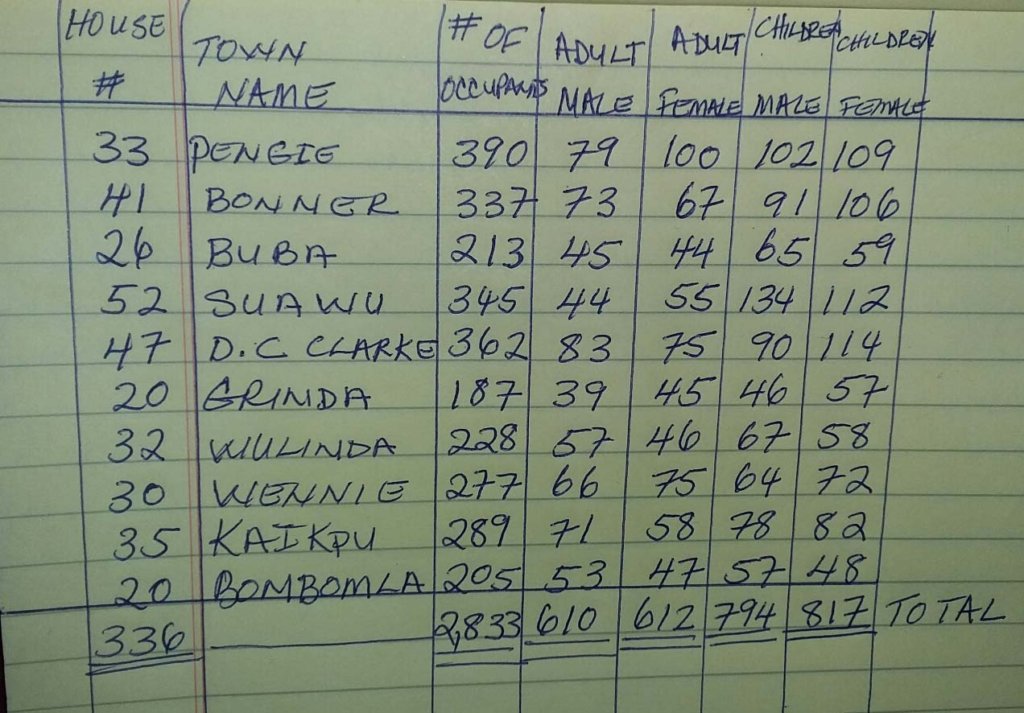 HOUSE # TOWN NAME # OF OCCUPANTS ADULT MALE ADULT FEMALE CHILDREN MALE CHILDREN FEMALE
33 PENGIE 390 79 100 102 109
41 BONNER 337 73 67 91 106
26 BUBA 213 45 44 65 59
52 SUAWU 345 44 55 134 112
47 D.C CLARKE 362 83 75 90 114
20 GRINDA 187 39 45 46 57
32 WULINDA 228 57 46 67 58
30 WENNIE 277 66 75 64 72
35 KAIKPU 289 71 58 78 82
20 BOMBOMLA 205 53 47 57 48
336 2,833 610 612 794 817 TOTAL